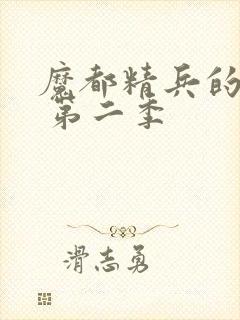 魔都精兵的
第二季
滑志勇